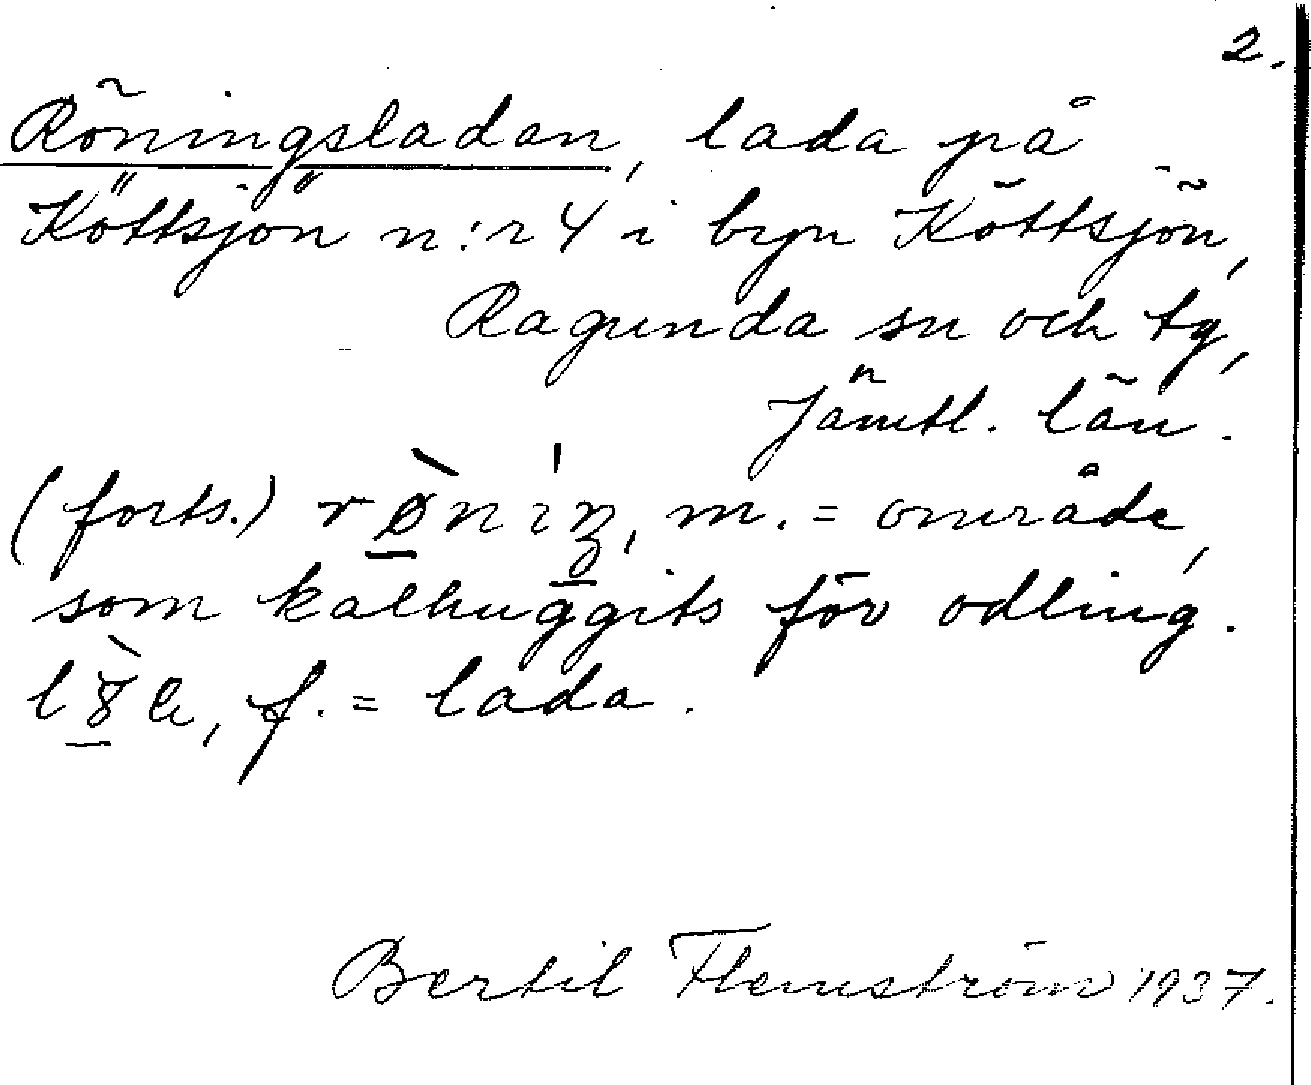 2.
Röningsladan, lada på
Köttsjön n:r 4 i byn Köttsjön,
Ragunda sn och tg,
Jämtl. län.
(forts.) rø̠̀níŋ̠, m. = område,
som kalhuggits för odling.
f. = lada.
Bertil Flemström 1937.